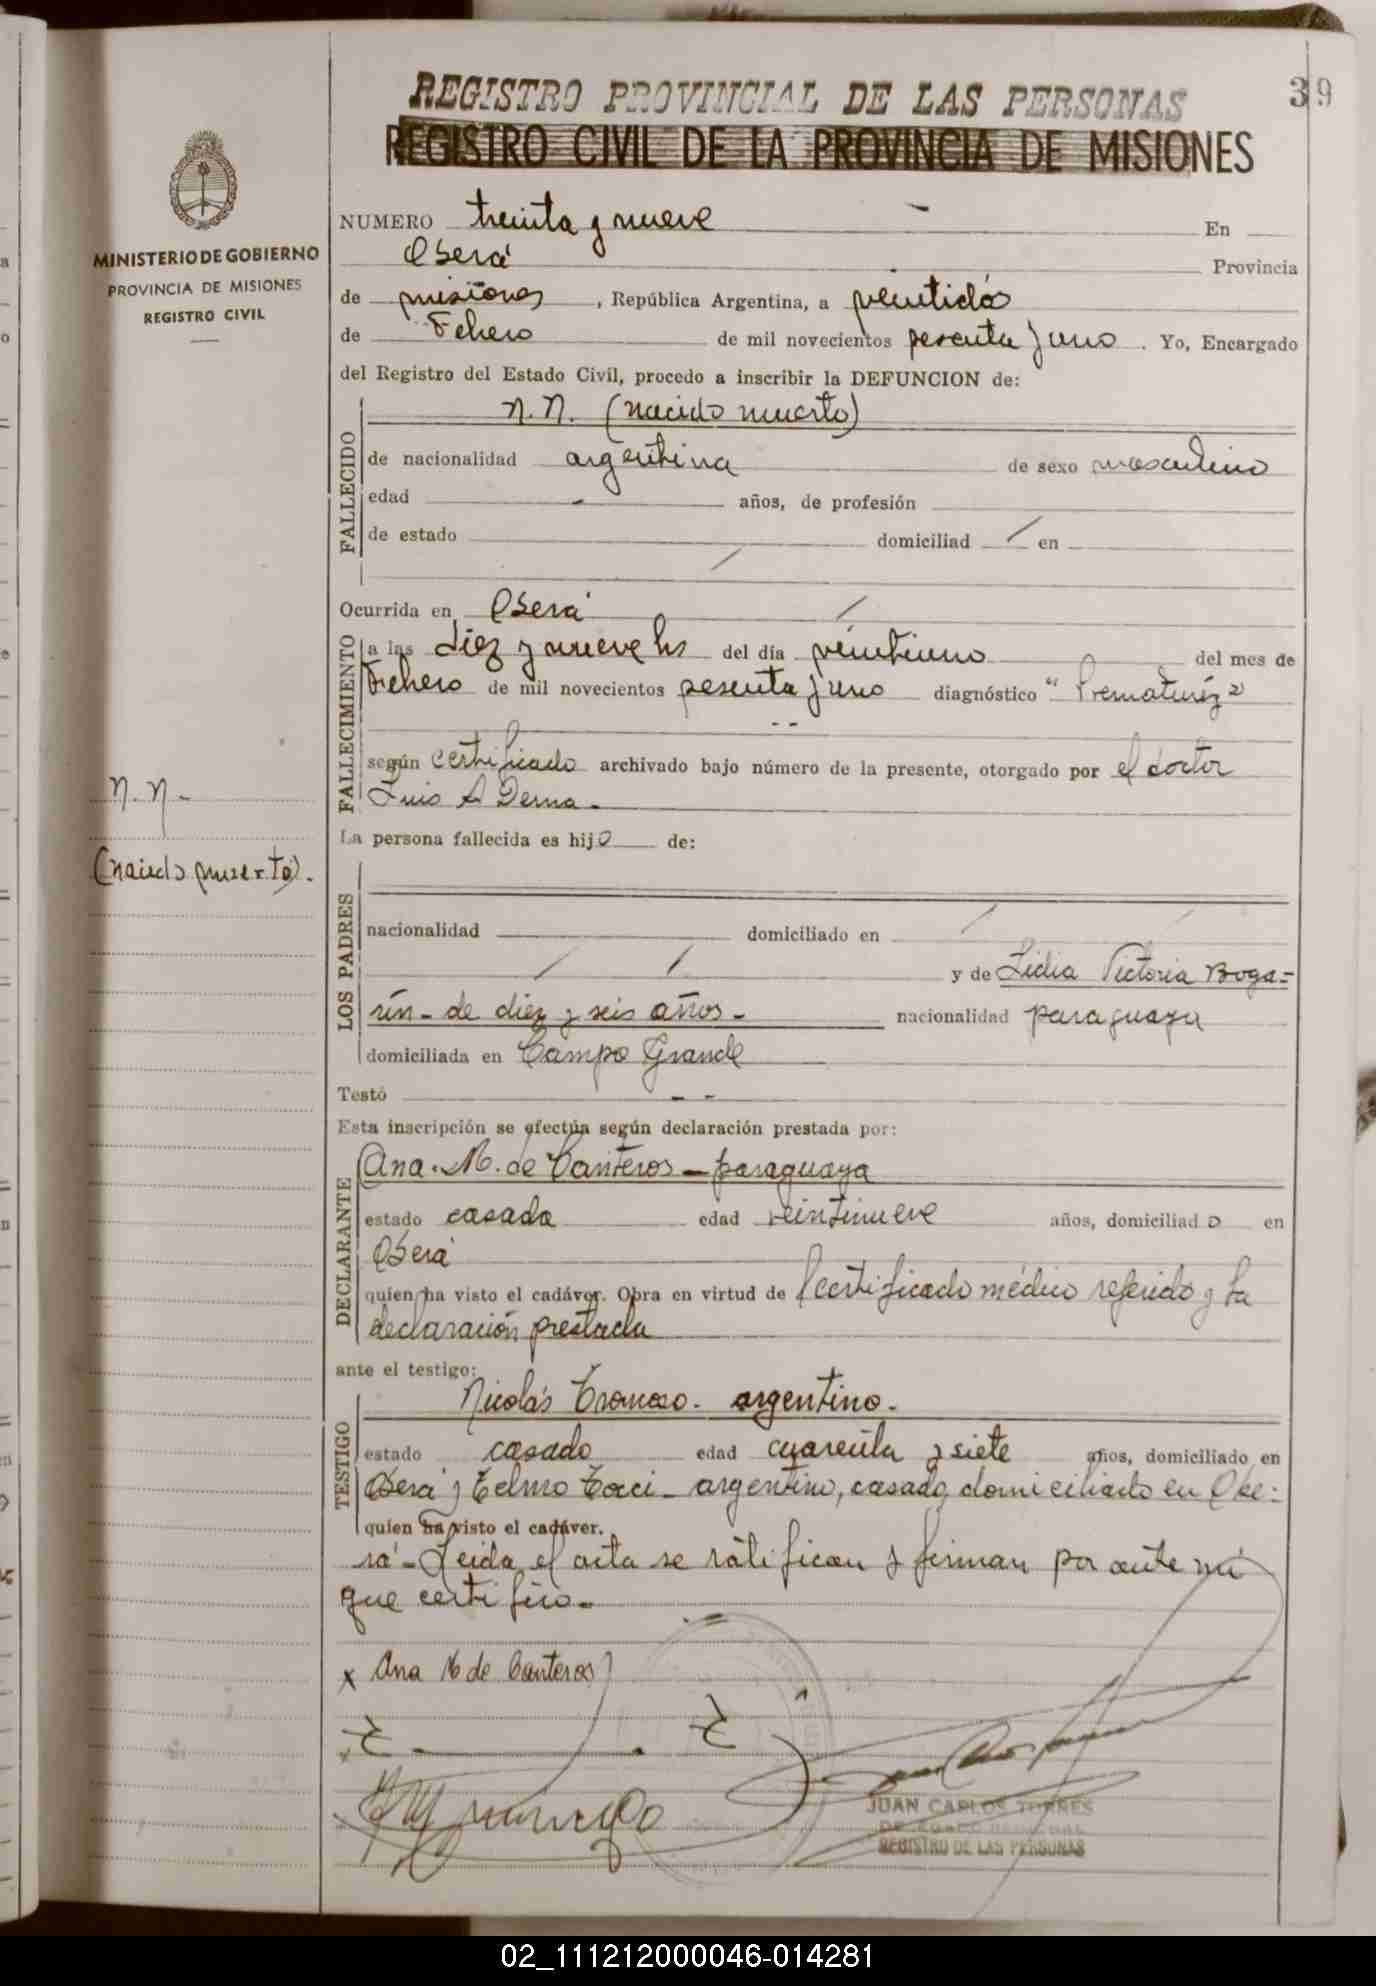 REGISTRO PROVINCIAL DE LAS PERSONAS
39
REGISTRO CIVIL DE LA PROVINCIA DE MISIONES
MINISTERIO DE GOBIERNO
PROVINCIA DE MISIONES
REGISTRO CIVIL
NUMERO treinta y nueve En
Oberá Provincia
de misiones, República Argentina, a veintidós
de Febrero de mil novecientos sesenta y uno. Yo, Encargado
del Registro del Estado Civil, procedo a inscribir la DEFUNCION de:
N.N. (nacido muerto)
FALLECIDO
de nacionalidad argentina de sexo masculino
edad - años, de profesión
de estado domiciliad / en
Ocurrida en Oberá
FALLECIMIENTO
a las diez y nueve hs del día veintiuno del mes de
Febrero de mil novecientos sesenta y uno diagnóstico "Prematuréz"
según certificado archivado bajo número de la presente, otorgado por el doctor
Luis A
N.N.-
(nacido muerto).
La persona fallecida es hijo de:
LOS PADRES
nacionalidad domiciliado en
y de Lidia Victoria Boga=
rín - de diez y seis años - nacionalidad paraguaya
domiciliada en Campo Grande
Testó - -
Esta inscripción se efectúa según declaración prestada por:
DECLARANTE
Ana. M. de Canteros - paraguaya
estado casada edad veintinueve años, domiciliado en
Oberá
quien ha visto el cadáver. Obra en virtud de certificado médico referido y la
declaración prestada
ante el testigo:
TESTIGO
Nicolás argentino.
estado casado edad cuarenta y siete años, domiciliado en
Oberá y Telmo - argentino, casado, domiciliado en Obe=
quien ha visto el cadáver.
rá - Leida el acta se ratifican y firman por ante mi
que certifico.-
x Ana M de Canteros
JUAN CARLOS TORRES
DELEGADO REGIONAL
REGISTRO DE LAS PERSONAS
02_111212000046-014281